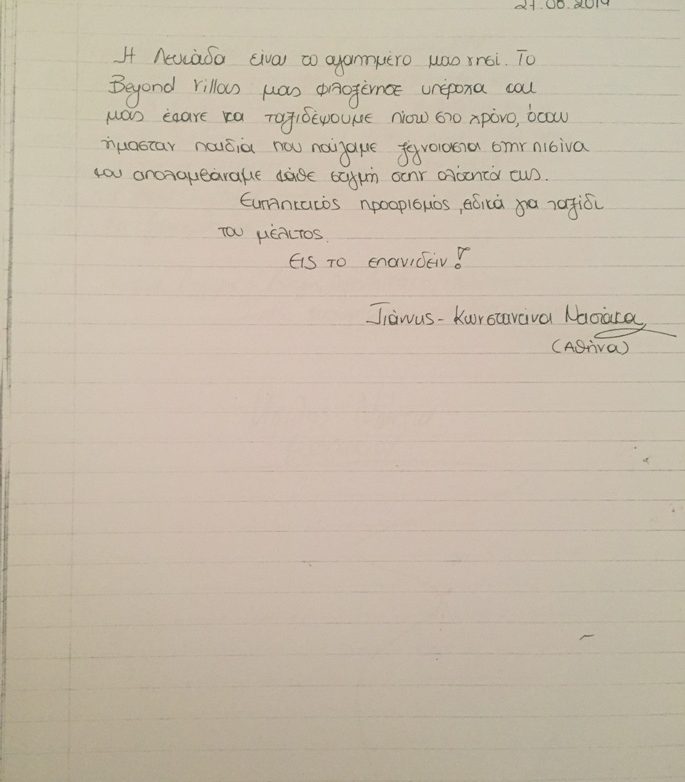 27.08.2019
Η Λευκάδα είναι το αγαπημένο μας νησί. Το
Beyond Villas μας φιλοξένησε υπέροχα και
μας έκανε να ταξιδέψουμε πίσω στο χρόνο, όταν
ήμασταν παιδιά που παίζαμε ξέγνοιαστα στην πισίνα
και απολαμβάναμε κάθε στιγμή στην ολότητά της.
Εκπληκτικός προορισμός, ειδικά για ταξίδι
του μέλιτος.
Εις το επανιδείν!
Γιάννης - Κωνσταντίνα
(Αθήνα)